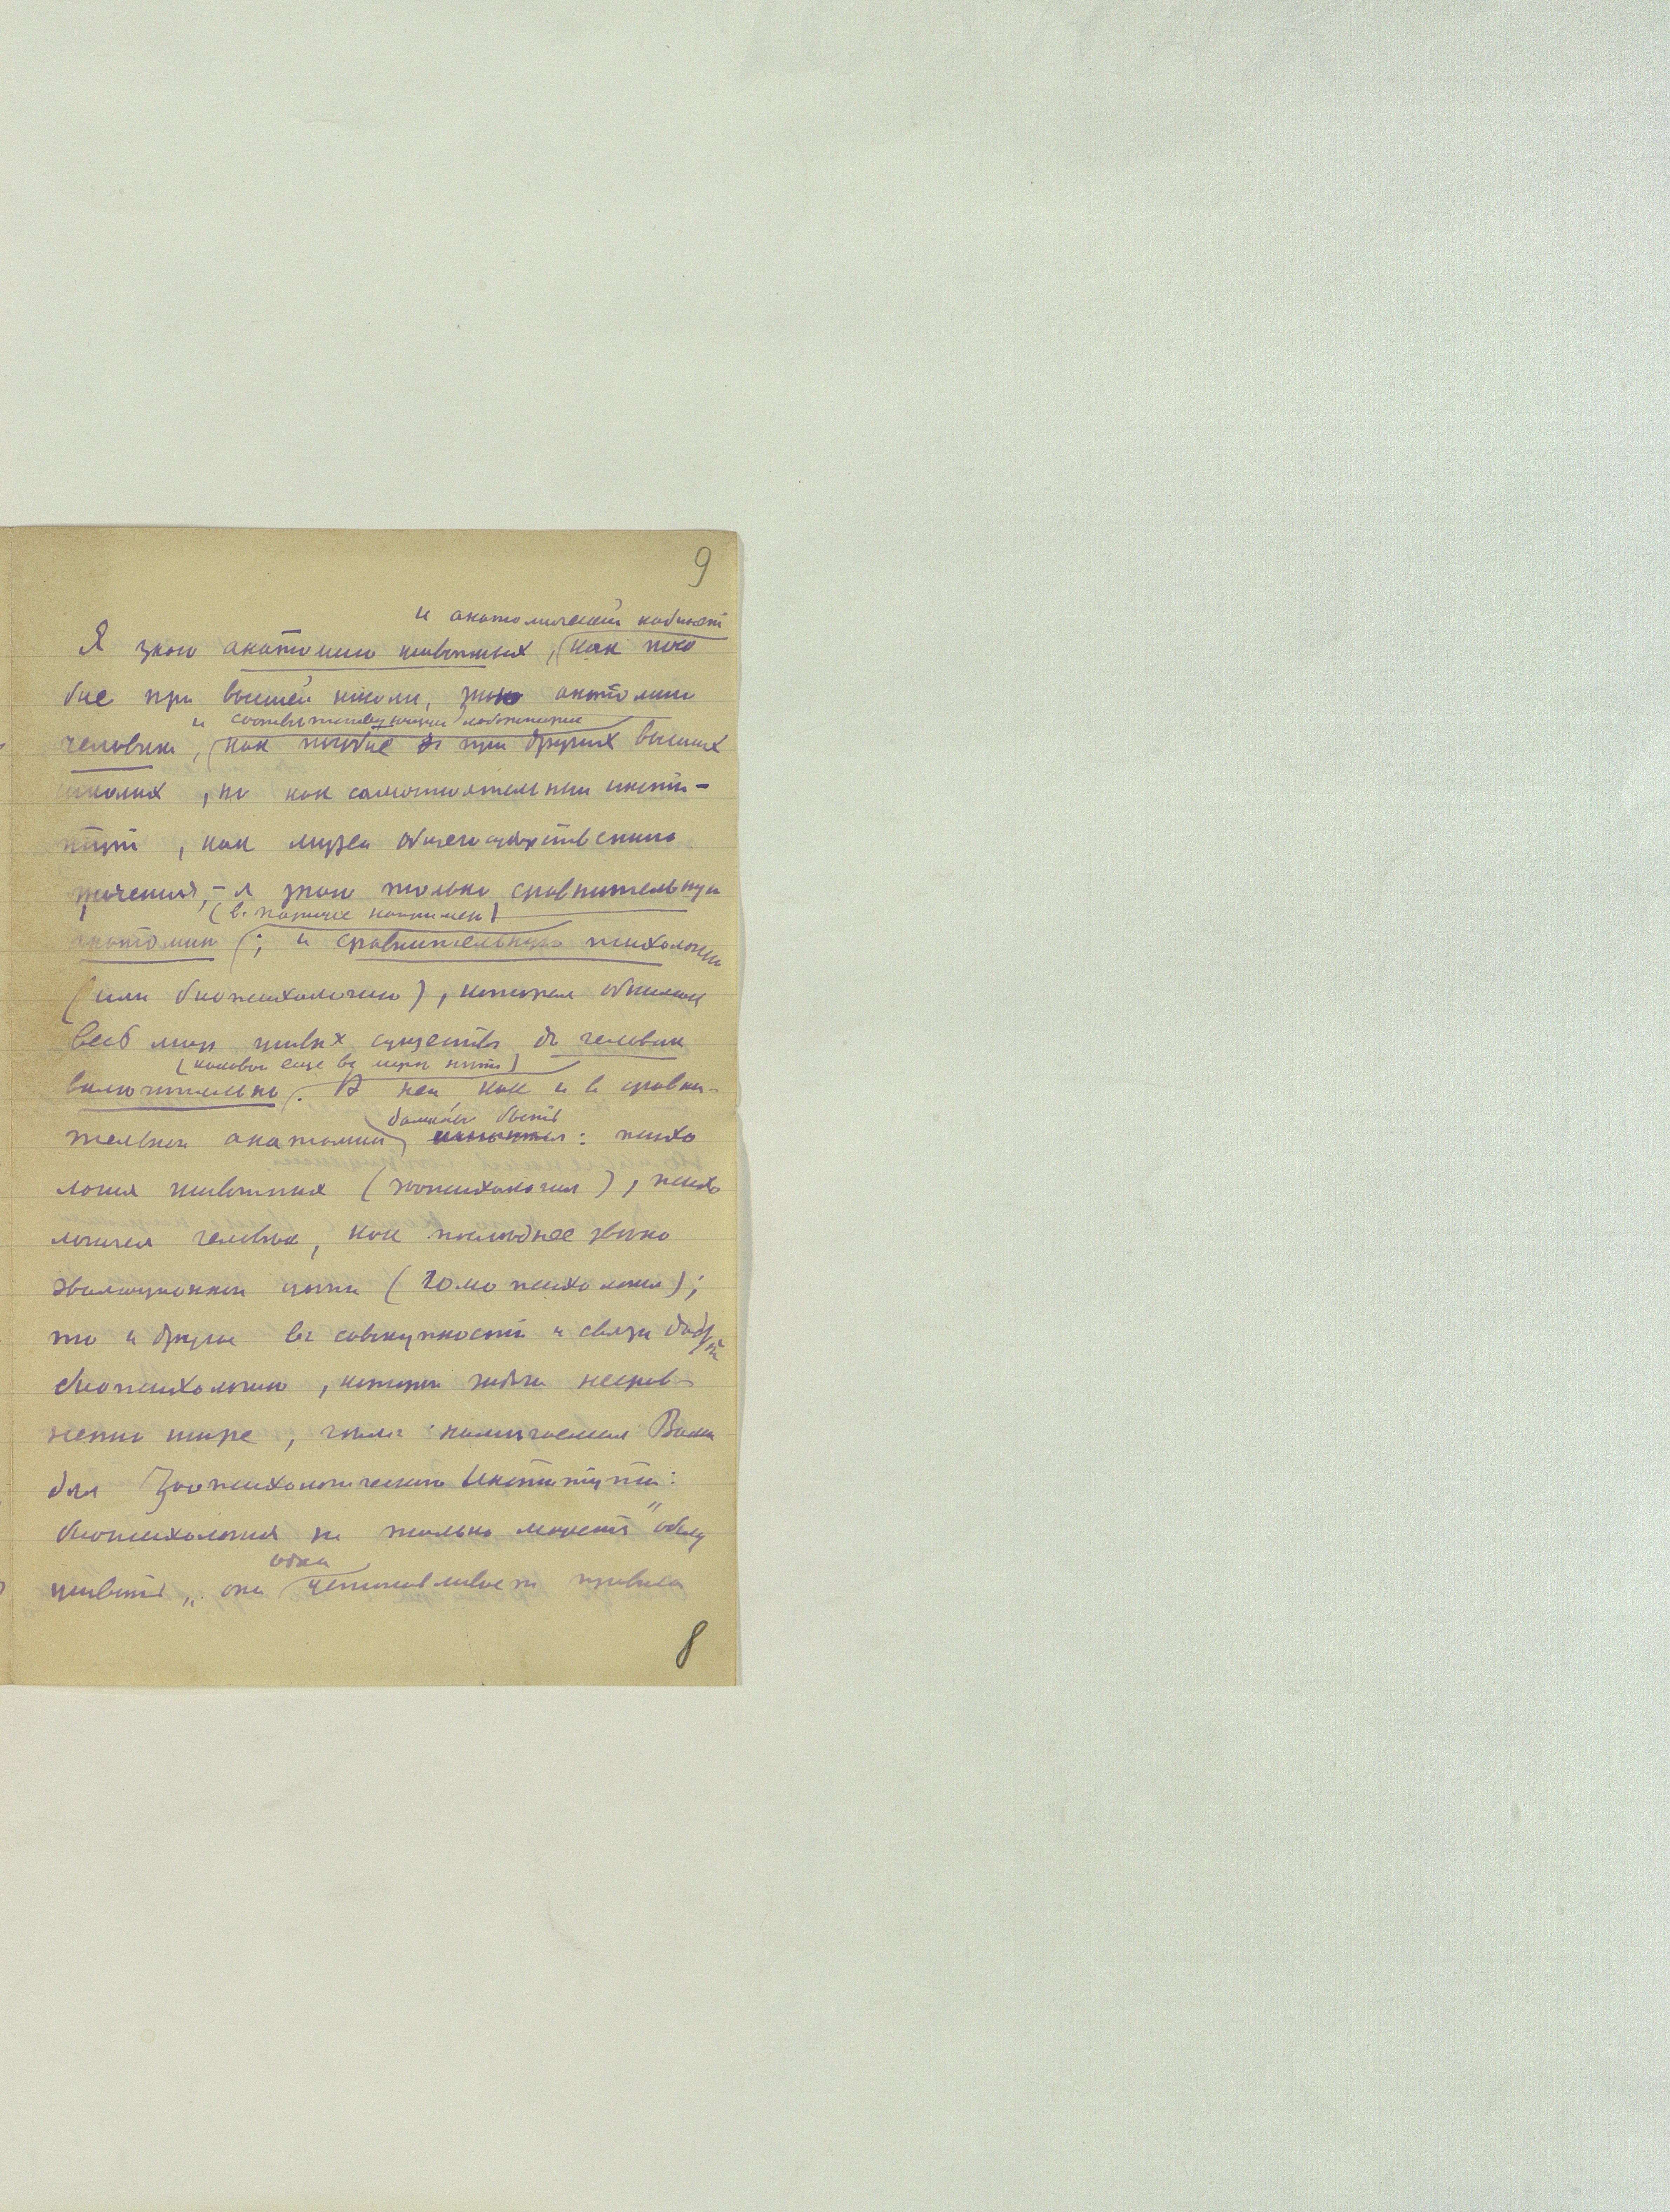 9
и анатомический кабинет
Я знаю анатомию животных, как посо
бие при высшей школе, знаю анатомию
и соответствующие лаборатории
человека, как пособие при других высших
школах, но как самостоятельный инсти-
тут, как музей общегосударственного
значения, - я знаю только сравнительную
(в Париже например)
анатомию; и сравнительную психологию
(или биопсихологию), которая обнимает
весь мир живых существ до человека
(каковой еще в мире нет)
включительно. В ней как и в сравни-
должны быть
тельной анатомии: психо
логия животных (зоопсихология), психо
логия человека, как последнее звено
эволюционной цепи (гомопсихология);
то и другое в совокупности и связи дадут
биопсихологию, которой задачи несрав
ненно шире, чем намечаемая Вами
для Зоопсихологического Института:
биопсихология не только может "объед
одна
она устанавливает правила
8